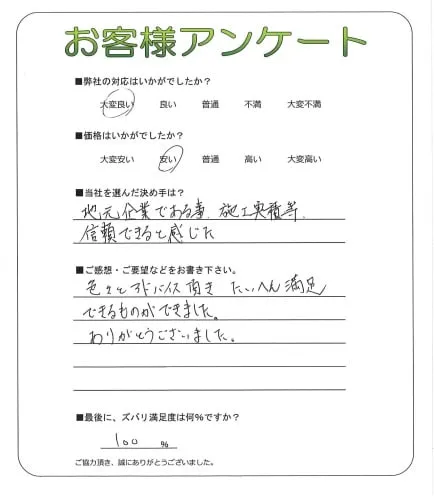 お客様アンケート
■弊社の対応はいかがでしたか？
大変良い 良い 普通 不満 大変不満
■価格はいかがでしたか？
大変安い 安い 普通 高い 大変高い
■当社を選んだ決め手は？
地元企業である事、施工実積等、
信頼できると感じた
■ご感想・ご要望などをお書き下さい。
色々とアドバイス頂き たいへん満足
できるものができました。
ありがとうございました。
■最後に、ズバリ満足度は何％ですか？
100 %
ご協力頂き、誠にありがとうございました。